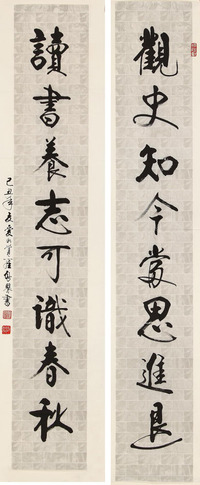 觀史知今當思進退
讀書養志可識春秋
己丑年